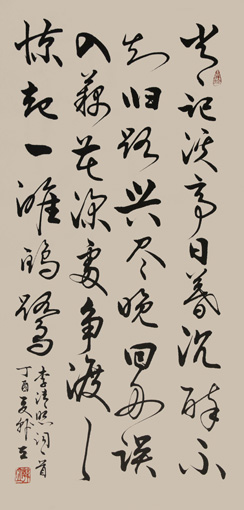 常记溪亭日暮沉醉不
知归路兴尽晚回舟误
入藕花深处争渡々
惊起一滩鸥鹭
李清照词一首
丁酉夏